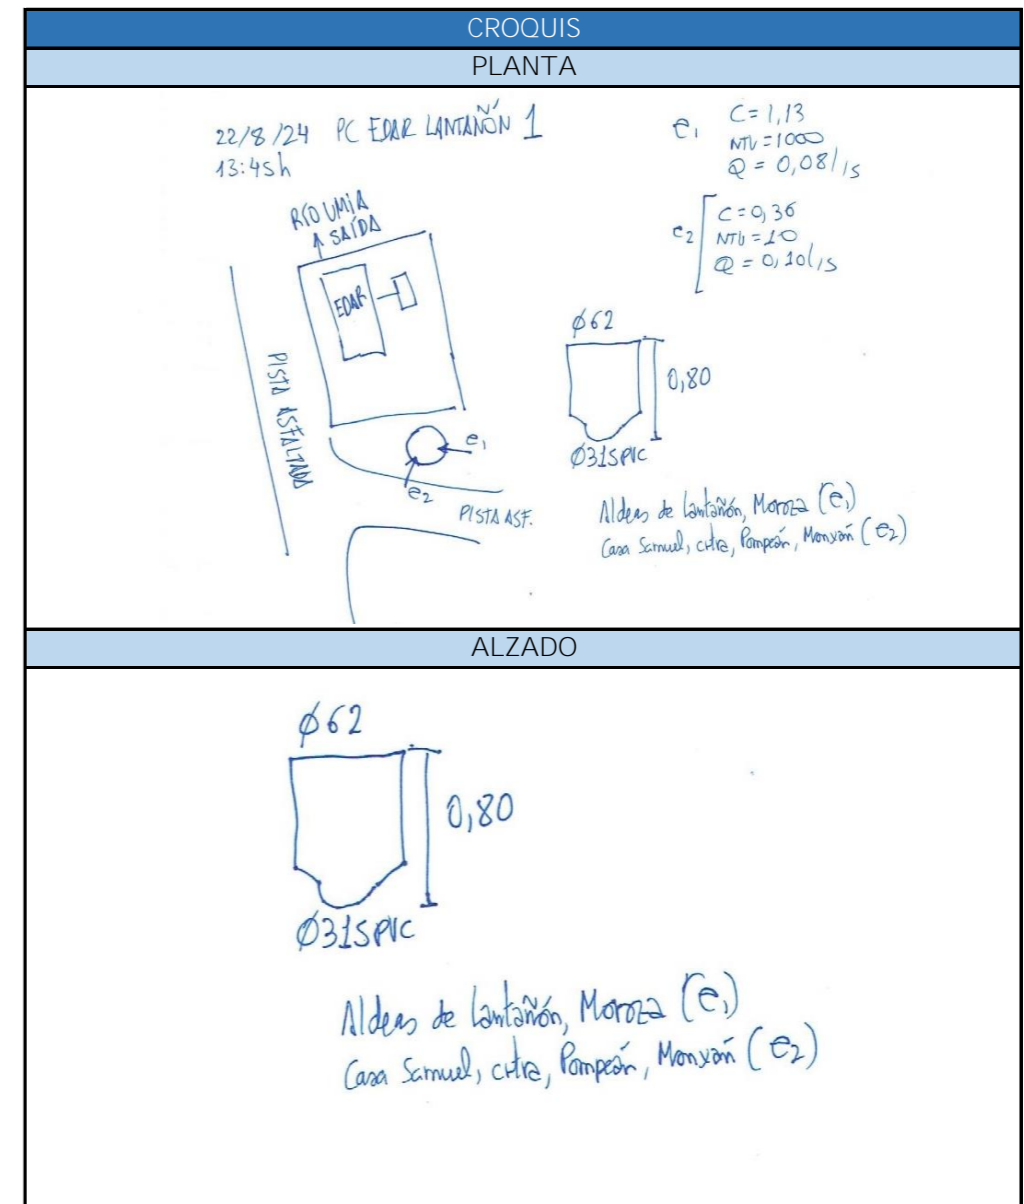 CROQUIS
PLANTA
22/8/24 PC EDAR LANTAÑÓN 1
13:45h
e1 C=1,13
NTU=1000
Q=0,08l/s
e2 C=0,36
NTU=10
Q=0,10l/s
RÍO UMIA
SAÍDA
EDAR
PISTA ASFALTADA
e1
e2
PISTA ASF.
Ø62
0,80
Ø315PVC
Aldeas de Lantañón, Moroza (e1)
Casa Samuel, crtra, Pompeán, Monxán (e2)
ALZADO
Ø62
0,80
Ø315PVC
Aldeas de Lantañón, Moroza (e1)
Casa Samuel, crtra, Pompeán, Monxán (e2)